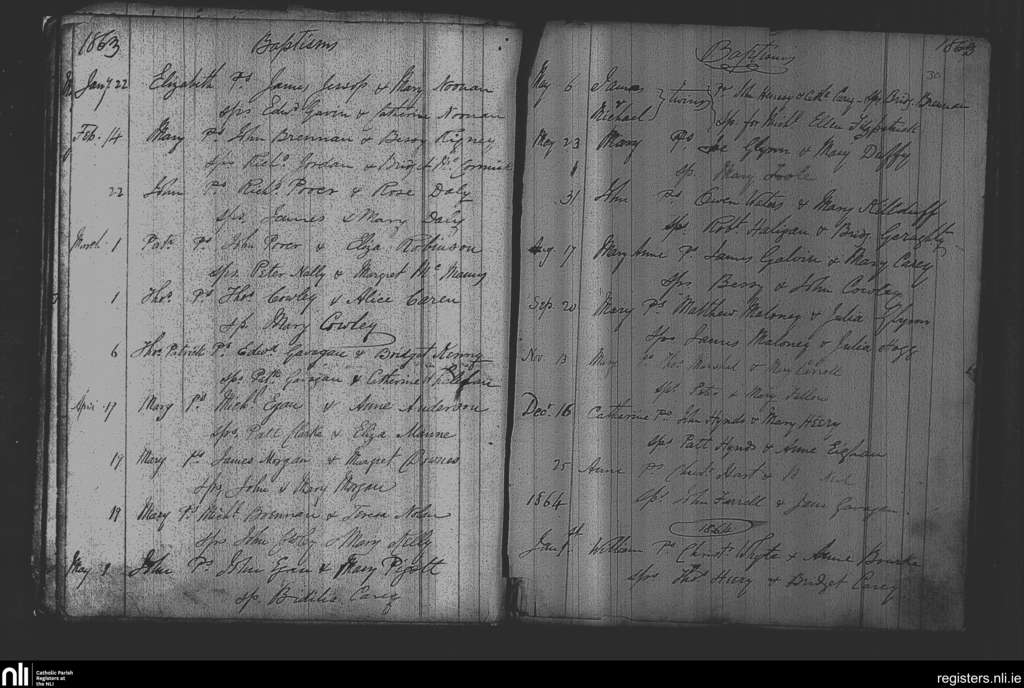 1863 Baptisms
Jany 22 Elizabeth Ps James Jessop & Mary Noonan
sps Edwd Gavin & Catherine Noonan
Feb. 14 Mary Ps John Brennan & Bessy Rigney
sps Richd Jordan & Bridget McCormick
22 John Ps Richd Power & Rose Daly
sps James & Mary Daly
March 1 Patk Ps John Power & Eliza Robinson
sps Peter Nally & Margret Mc
1 Thos Ps Thos Cowley & Alice Caren
sp. Mary Cowley
6 Thos Patrick Ps Edwd Gavagan & Bridget Kenny
sps Patk Gavagan & Catherine
April 17 Mary Ps Michl Egan & Anne Anderson
sps Patt Clarke & Eliza Manne
19 Mary Ps James Morgan & Margret Downes
sps John & Mary Morgan
19 Mary Ps Michl Brennan & Teresa Nolan
sps John & Mary Kelly
May 1 John Ps John Egan & Mary Pigott
sp. Bidilia Carey
Baptisms 1863
30
May 6 James & Michael } twins { Ps John & Cath. Carey - sps Bridg. Brennan
sp. for Michl Ellen Fitzpatrick
May 23 Mary Ps Joe Glynn & Mary Duffy
sp. Mary Toole
31 John Ps Owen Waters & Mary Killduff
sps Robt Haligan & Bridg. Garaghty
Aug 17 Mary Anne Ps James Galvin & Mary Carey
sps Bessy & John Cowley
Sep. 20 Mary Ps Matthew Maloney & Julia Glynn
sps James Maloney & Julia
Nov. 13 Mary Ps Thos & Mary Carroll
sps Peter & Mary Fallon
Decr 16 Catherine Ps John Hynds & Mary Heery
sps Patt Hynds & Anne
25 Anne Ps Christ. &
1864 sps John Farrell & Jane Gavagan.
1864
Jany 1st William Ps Christr Whyte & Anne Bourke
sps Thos Heery & Bridget Carey
nli
Catholic Parish
Registers at
the NLI
registers.nli.ie